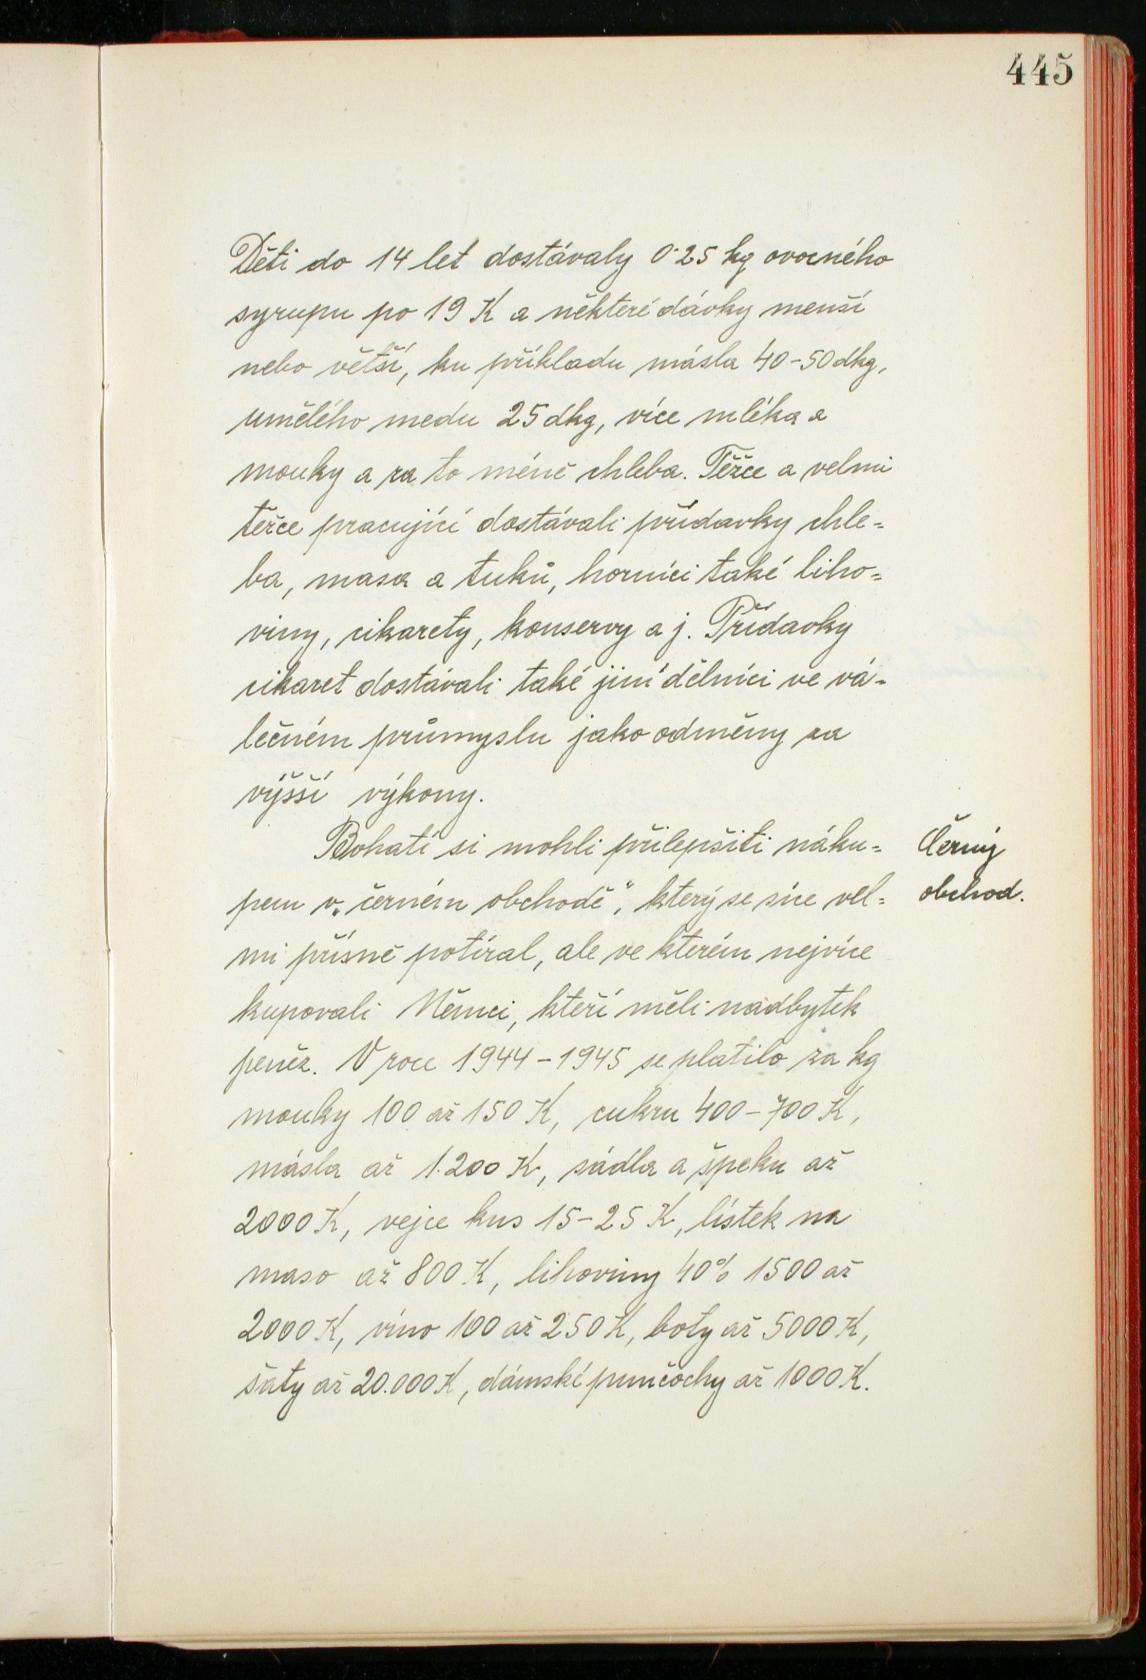 445
Děti do 14 let dostávaly 0·25 kg ovocného
syrupu po 19 K a některé dávky menší
nebo větší, ku příkladu másla 40-50 dkg,
umělého medu 25 dkg, více mléka a
mouky a za to méně chleba. Těžce a velmi
těžce pracující dostávali přídavky chle=
ba, masa a tuků, horníci také liho=
viny, cikarety, konservy a j. Přídavky
cikaret dostávali také jiní dělníci ve vá=
lečném průmyslu jako odměny za
výšší výkony.
Bohatí si mohli přilepšiti náku=
pem v „černém obchodě“, který se sice vel=
mi přísně potíral, ale ve kterém nejvíce
kupovali Němci, kteří měli nadbytek
peněz. V roce 1944-1945 se platilo za kg
mouky 100 až 150 K, cukru 400-700 K,
másla až 1.200 K, sádla a špeku až
2000 K, vejce kus 15-25 K, lístek na
maso až 800 K, lihoviny 40% 1500 až
2000 K, víno 100 až 250 K, boty až 5000 K,
šaty až 20.000 K, dámské punčochy až 1000 K.
Černý
obchod.